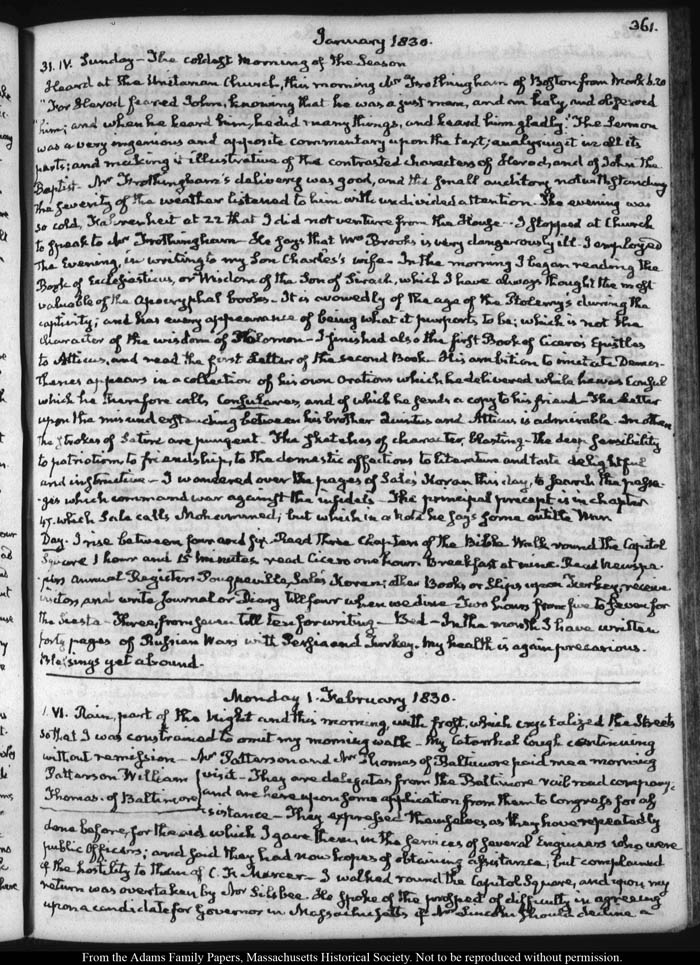 361.
January 1830.
31. IV. Sunday - The coldest morning of the Season
Heard at the Unitarian Church, this morning Mr Frothingham of Boston from Mark 6.20
"For Herod feared John, knowing that he was a just man, and an holy, and observed
"him; and when he heard him, he did many things, and heard him gladly." The Sermon
was a very ingenious and apposite commentary upon the text; analysing it in all its
parts; and making it illustrative of the contrasted characters of Herod, and of John the
Baptist. Mr Frothingham's delivery was good, and the small auditory notwithstanding
the severity of the weather listened to him with undivided attention. The evening was
so cold, Fahrenheit at 22 that I did not venture from the House. I stopped at Church
to speak to Mr Frothingham - He says that Mrs Brooks is very dangerously ill. I employed
the Evening, in writing to my Son Charles's wife. In the morning I began reading the
Book of Ecclesiasticus, or Wisdom of the Son of Sirach, which I have always thought the most
valuable of the Apocryphal books. It is avowedly of the age of the Ptolemy's during the
captivity; and has every appearance of being what it purports to be; which is not the
character of the wisdom of Solomon - I finished also the first Book of Cicero's Epistles
to Atticus, and read the first Letter of the second Book. His ambition to imitate Demos-
thenes appears in a collection of his own Orations which he delivered while he was Consul
which he therefore calls Consulares, and of which he sends a copy to his friend - The Letter
upon the misunderstanding between his brother Quintus and Atticus is admirable. In others
the strokes of Satire are pungent. The sketches of character, blasting - the deep sensibility
to patriotism, to friendship, to the domestic affections to literature and taste delightful
and instructive - I wandered over the pages of Sales Koran this day, to search the passa-
-ges which command war against the infidels - The principal precept is in chapter
47. which Sale calls Mohammed; but which in a note he says some entitle War
Day. I rise between four and six. Read three Chapters of the Bible Walk round the Capitol
Square 1 hour and 15 minutes. read Cicero one hour. Breakfast at nine. Read Newspa-
-pers Annual Registers Pouqueville, Sales Koran; other Books or Slips upon Turkey, receive
visitors and write Journal or Diary till four when we dine - Two hours from five to seven for
the Siesta - Three, from seven till ten for writing - Bed - In the month I have written
forty pages of Russian Wars with Persia and Turkey. My health is again precarious.
Blessings yet abound.
Monday 1. February 1830.
1. VI. Rain, part of the Night and this morning, with frost, which crystalized the Streets
so that I was constrained to omit my morning walk - My Catarrhal Cough continuing
without remission - Mr Patterson and Mr Thomas of Baltimore paid me a morning
Patterson William
Thomas. of Baltimore
visit - They are delegates from the Baltimore rail road company;
and are here upon some application from them to Congress for as
sistance - They expressed themselves as they have repeatedly
done before, for the aid which I gave them, in the services of several Engineers who were
public Officers; and said they had now hopes of obtaining assistance, but complained
of the hostility to them of C. F. Mercer - I walked round the Capitol Square, and upon my
return was overtaken by Mr Silsbee. He spoke of the prospect of difficulty in agreeing
upon a candidate for Governor in Massachusetts if Mr Lincoln should decline a
From the Adams Family Papers, Massachusetts Historical Society. Not to be reproduced without permission.